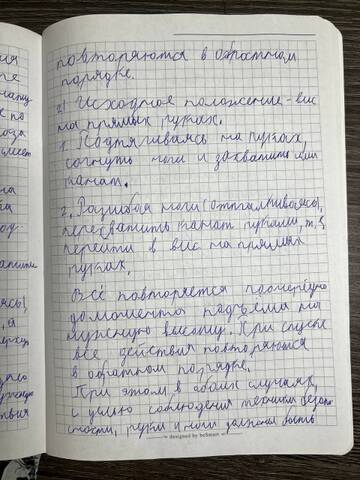 повторяются в обратном
порядке.
2) Исходное положение - вис
на прямых руках.
1. Подтягиваясь на руках,
согнуть ноги и захватить ими
канат.
2. Разгибая ноги (отталкиваясь),
перехватить канат руками, т.е.
перейти в вис на прямых
руках.
Всё повторяется поочерёдно
до момента подъёма на
нужную высоту. При спуске
все действия повторяются
в обратном порядке.
При этом в обоих случаях,
с целью соблюдения техники безопа
сности, руки и ноги должны быть
designed by